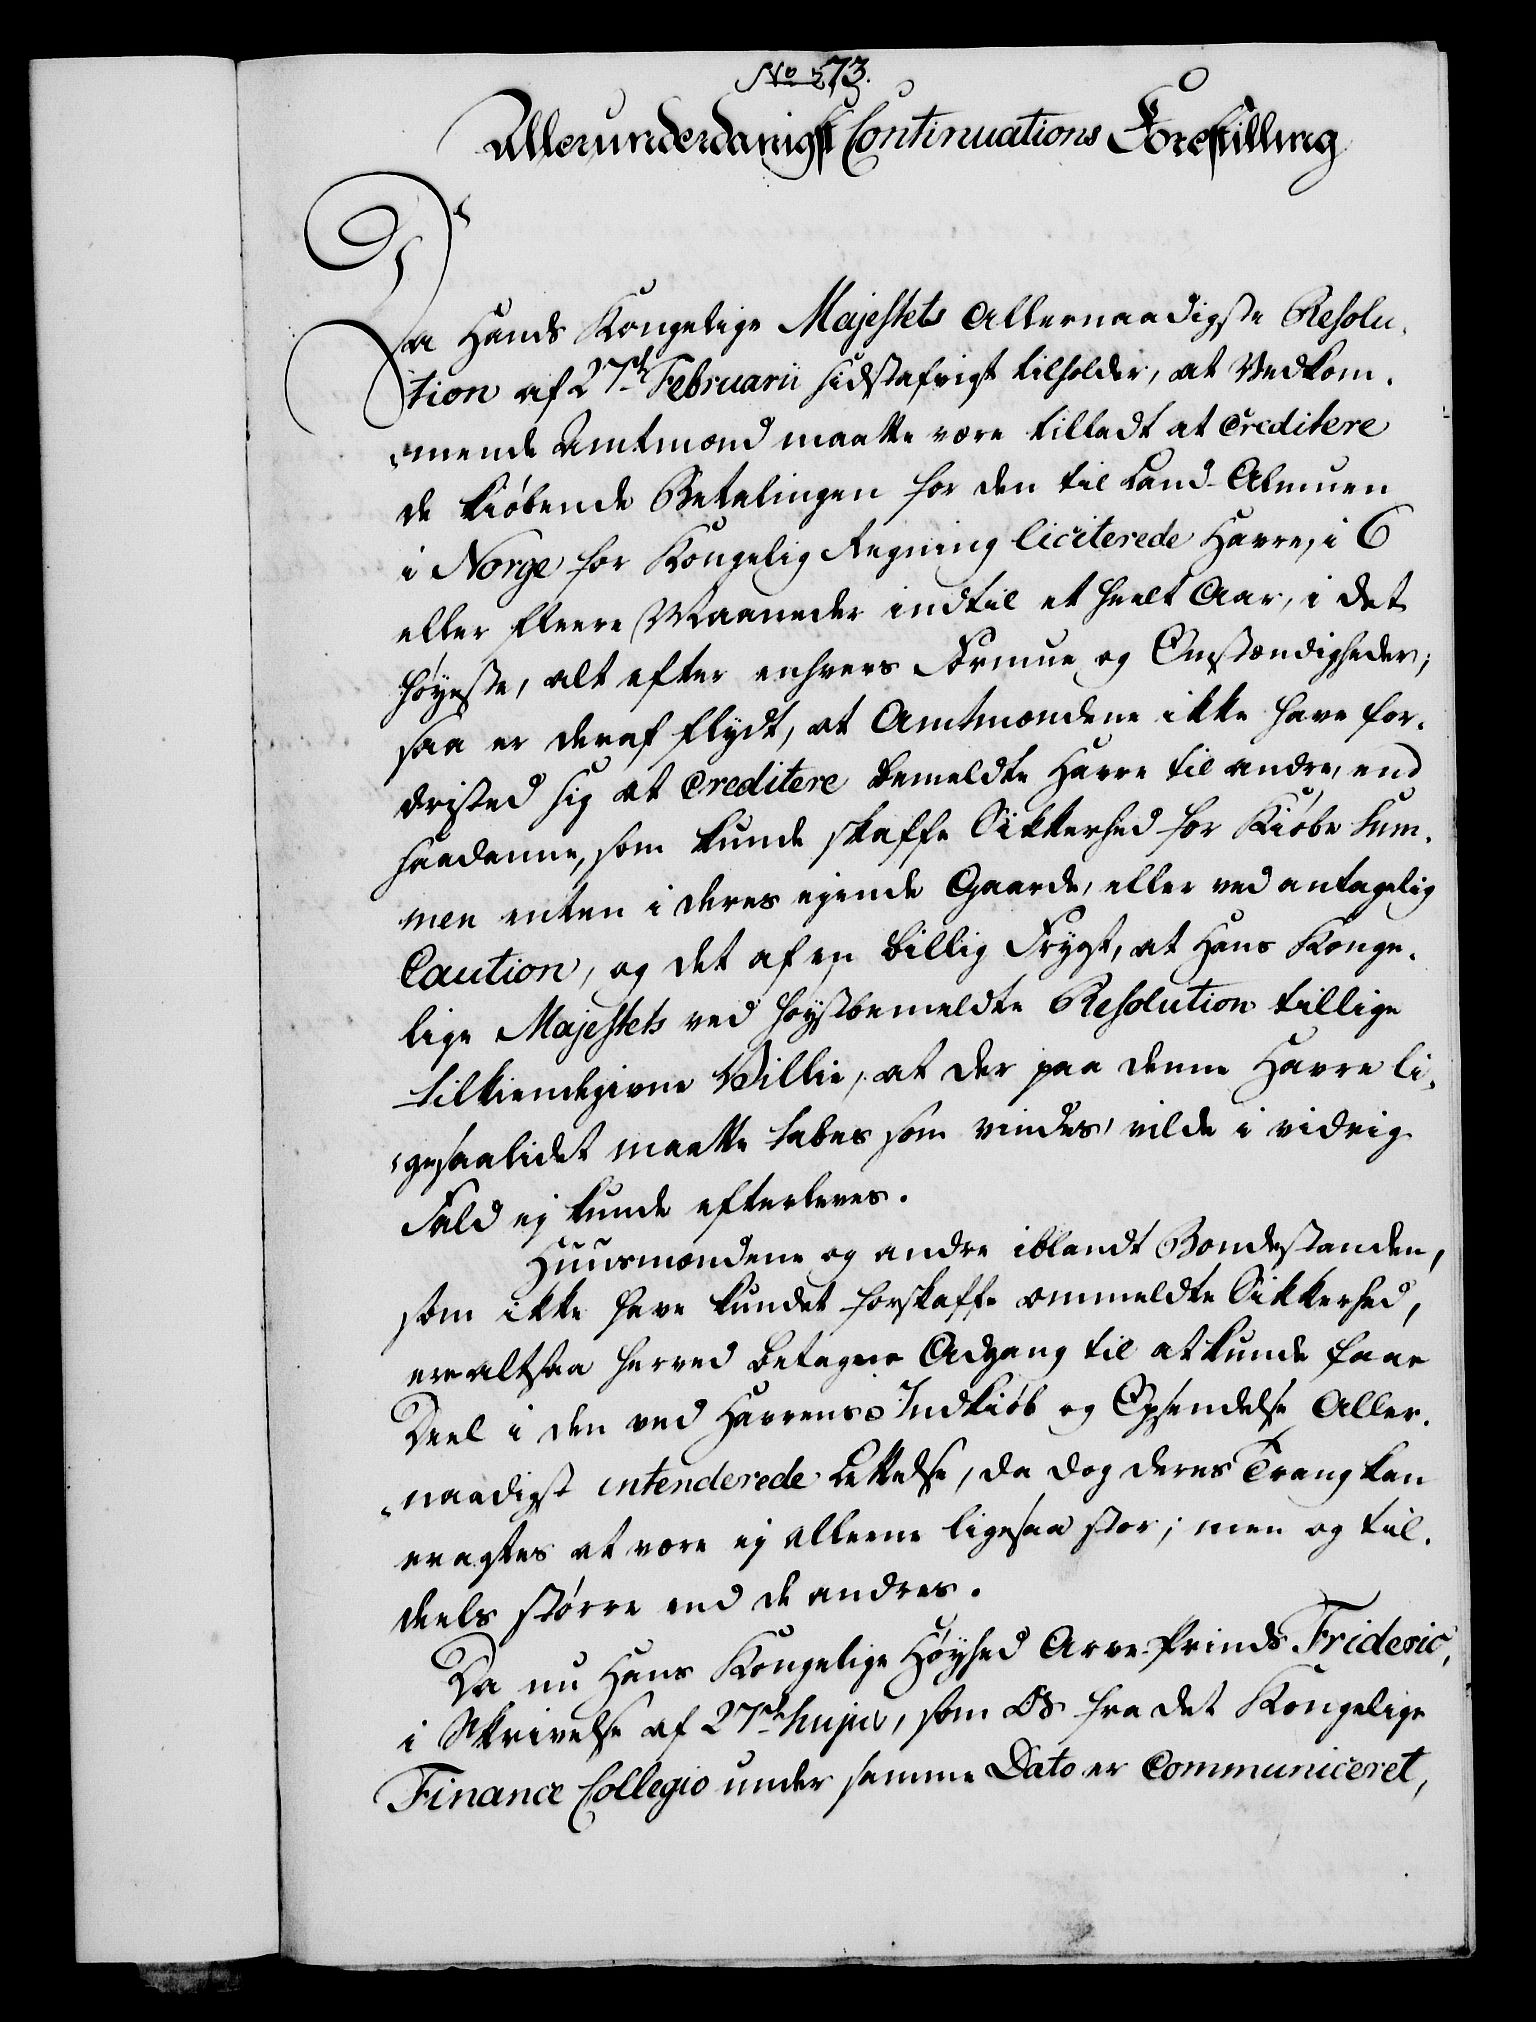 No 573.
Allerunderdanigst Continuations Forestilling
Da Hands Kongelige Majestets Allernaadigste Resolu-
tion af 27de Februarii sidstafvigt tilholder, at Vedkom-
mende Amtmænd maatte være tilladt at creditere
de kiøbende Betalingen for den til Land-Almuen
i Norge for Kongelig Regning liciterede Havre, i 6
eller fleere Maaneder indtil et heelt Aar, i det
høyeste, alt efter enhvers Formue og Omstændigheder;
saa er deraf flydt, at Amtmændene ikke have for-
dristed sig at creditere bemeldte Havre til andre, end
saadanne, som kunde skaffe Sikkerhed for Kiøbe Sum-
men enten i deres ejende Gaarde, eller ved antagelig
Caution, og det af en billig Frygt, at Hans Konge-
lige Majestets ved høystbemeldte Resolution tillige
tilkiendegivne Villie, at der paa denne Havre li-
gesaalidet maatte tabes som vindes, vilde i vidrig
Fald ej kunde efterleves.
Huusmændene og andre iblandt Bondestanden,
som ikke have kundet forskaffe ommeldte Sikkerhed,
ere altsaa herved betagne Adgang til at kunde faae
Deel i den ved Havrens Indkiøb og Opsendelse Aller-
naadigst intenderede Lettelse, da dog deres Trang kan
eragtes at være ej alleene ligesaa stor; men og til-
deels større end de andres.
Da nu Hans Kongelige Høyhed Arve-Prinds Frideric,
i Skrivelse af 27de hujus, som Os fra det Kongelige
Finance Collegio under samme Dato er communiceret,